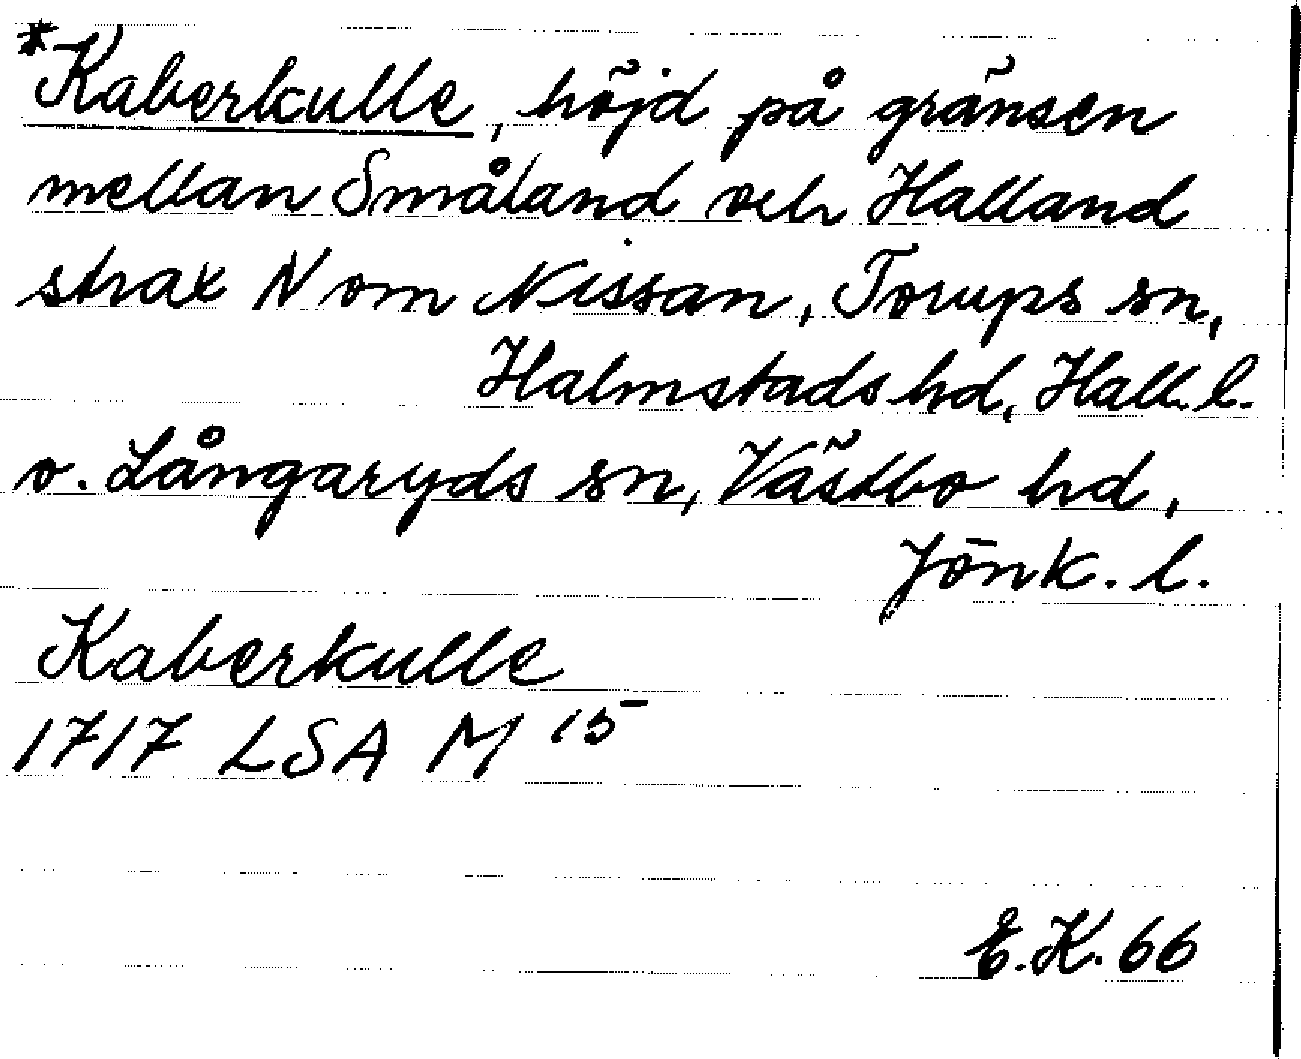 *Kaberkulle, höjd på gränsen
mellan Småland och Halland
strax N om Nissan, Torups sn,
Halmstads hd, Hall. l.
o. Långaryds sn, Västbo hd,
Jönk. l.
Kaberkulle
1717 LSA M 15
E.K. 66